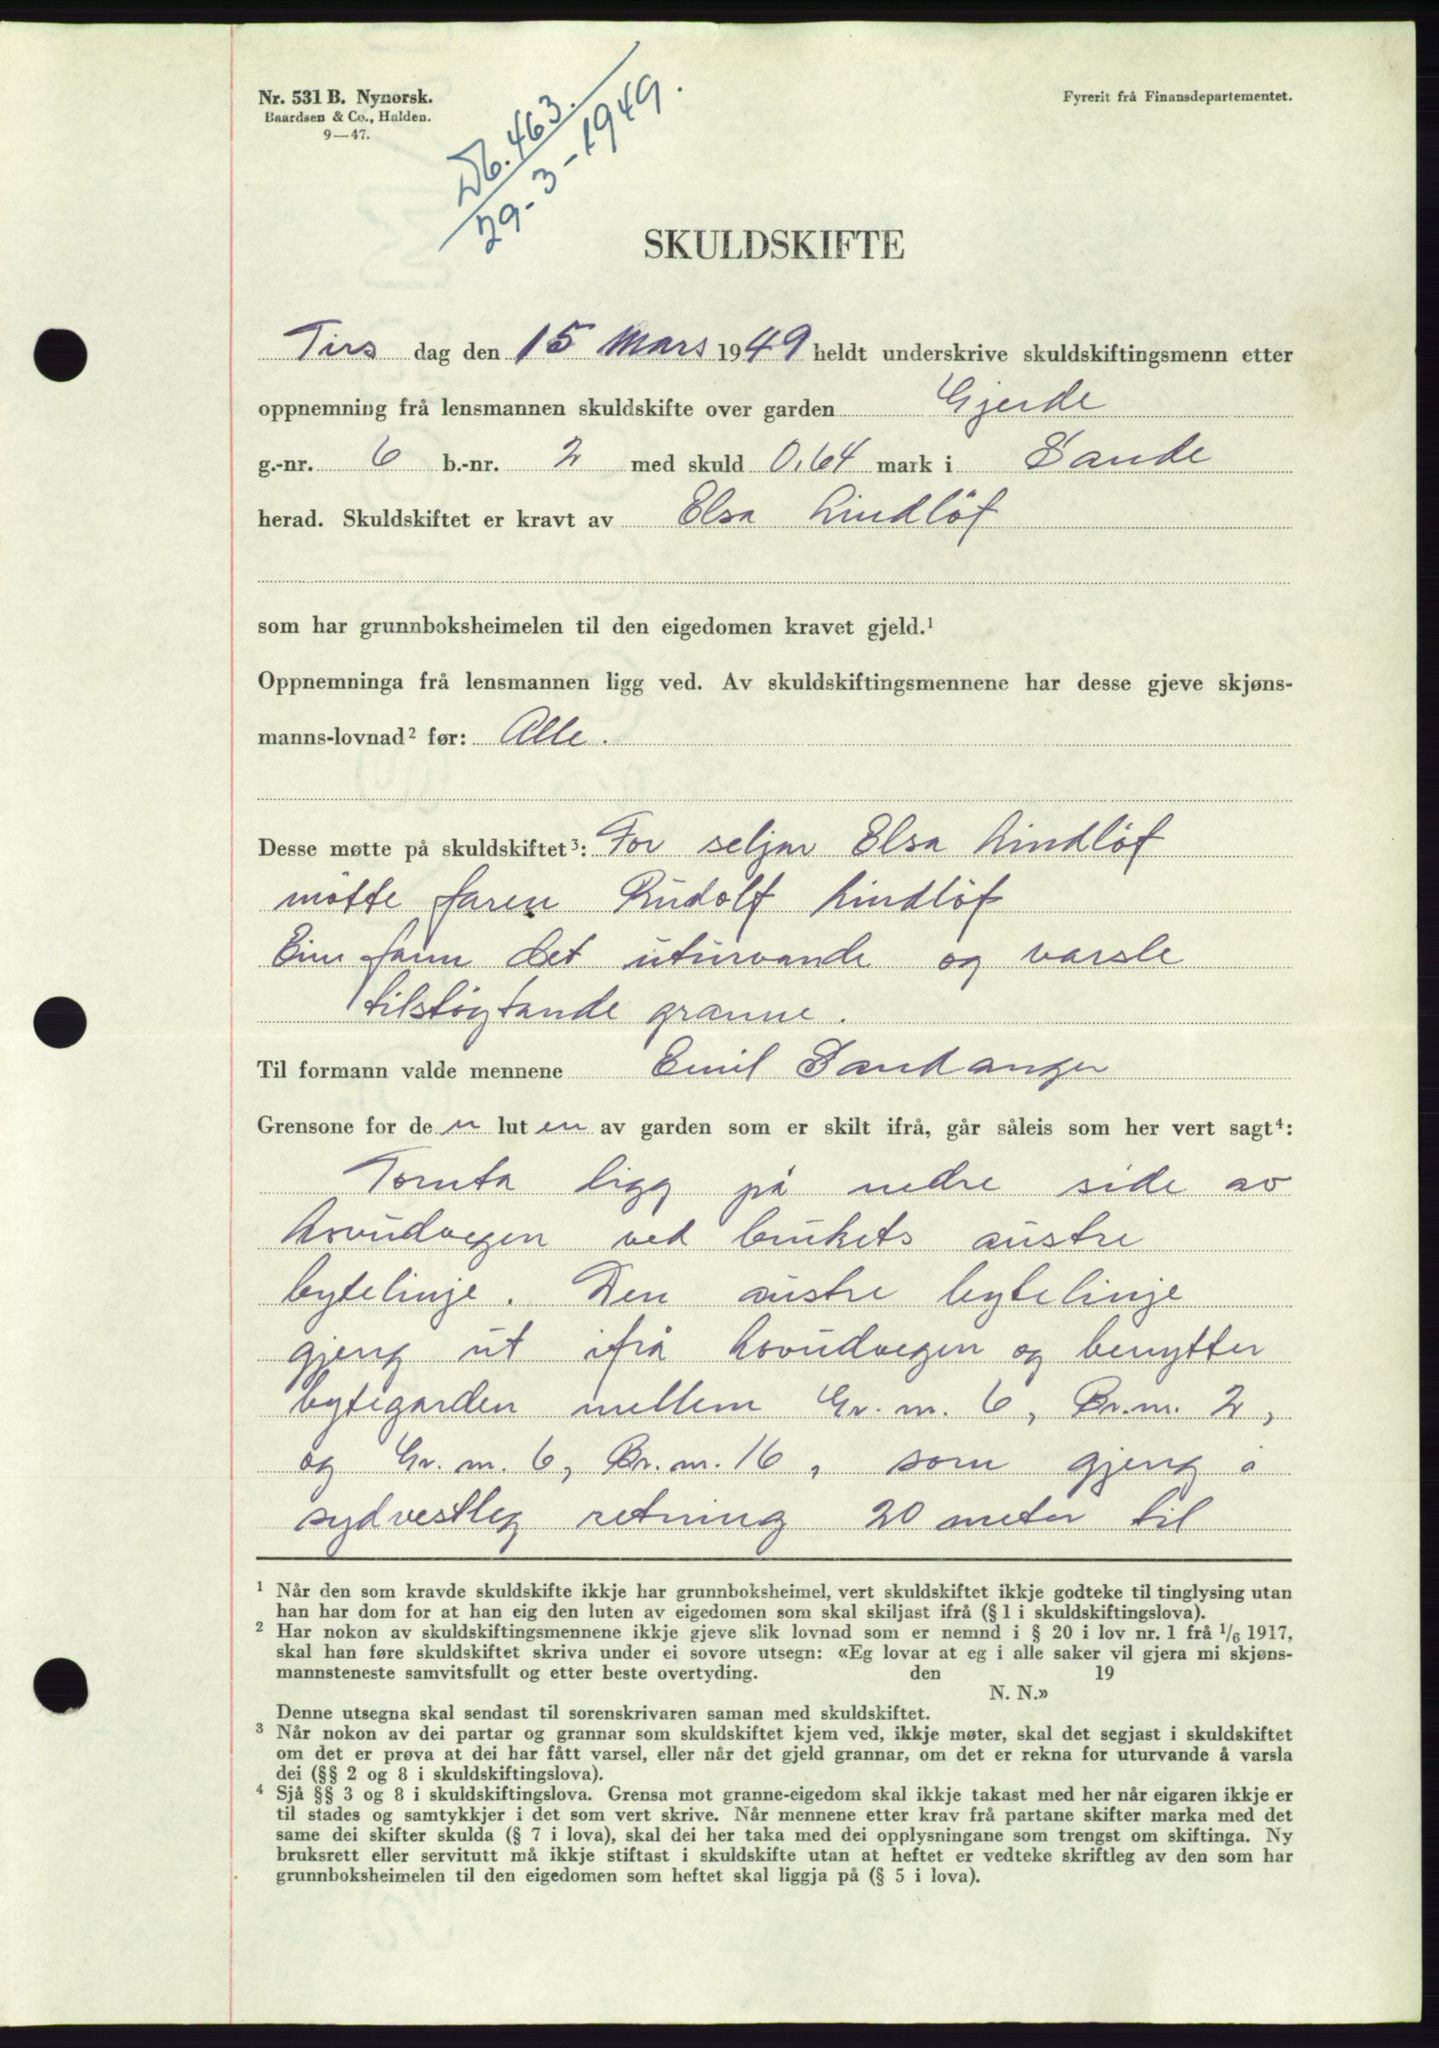 Nr. 531 B. Nynorsk.
Baardsen & Co., Halden.
9—47.
Fyrerit frå Finansdepartementet.
Db. 463.
29-3-1949.
SKULDSKIFTE
Tirs dag den 15 Mars 1949 heldt underskrive skuldskiftingsmenn etter
oppnemning frå lensmannen skuldskifte over garden Gjerde
g.-nr. 6 b.-nr. 2 med skuld 0,64 mark i Sande
herad. Skuldskiftet er kravt av Elsa Lindlöf
som har grunnboksheimelen til den eigedomen kravet gjeld.¹
Oppnemninga frå lensmannen ligg ved. Av skuldskiftingsmennene har desse gjeve skjøns-
manns-lovnad² før: Alle.
Desse møtte på skuldskiftet³: For seljar Elsa Lindlöf
møtte faren Rudolf Lindlöf
Ein fann det uturvande og varsle
tilstøytande granne.
Til formann valde mennene Emil Sandanger
Grensone for de n lut en av garden som er skilt ifrå, går såleis som her vert sagt⁴:
Tomta ligg på nedre side av
hovudvegen ved brukets austre
bytelinje. Den austre bytelinje
gjeng ut ifrå hovudvegen og benytter
bytegarden mellem Gr. nr. 6, Br. nr. 2,
og Gr. nr. 6, Br. nr. 16, som gjeng i
sydvestleg retning 20 meter til
¹ Når den som kravde skuldskifte ikkje har grunnboksheimel, vert skuldskiftet ikkje godteke til tinglysing utan
han har dom for at han eig den luten av eigedomen som skal skiljast ifrå (§ 1 i skuldskiftingslova).
² Har nokon av skuldskiftingsmennene ikkje gjeve slik lovnad som er nemnd i § 20 i lov nr. 1 frå ¹/₆ 1917,
skal han føre skuldskiftet skriva under ei sovore utsegn: «Eg lovar at eg i alle saker vil gjera mi skjøns-
mannsteneste samvitsfullt og etter beste overtyding. den 19
N. N.»
Denne utsegna skal sendast til sorenskrivaren saman med skuldskiftet.
³ Når nokon av dei partar og grannar som skuldskiftet kjem ved, ikkje møter, skal det segjast i skuldskiftet
om det er prøva at dei har fått varsel, eller når det gjeld grannar, om det er rekna for uturvande å varsla
dei (§§ 2 og 8 i skuldskiftingslova).
⁴ Sjå §§ 3 og 8 i skuldskiftingslova. Grensa mot granne-eigedom skal ikkje takast med her når eigaren ikkje er
til stades og samtykkjer i det som vert skrive. Når mennene etter krav frå partane skifter marka med det
same dei skifter skulda (§ 7 i lova), skal dei her taka med dei opplysningane som trengst om skiftinga. Ny
bruksrett eller servitutt må ikkje stiftast i skuldskifte utan at heftet er vedteke skriftleg av den som har
grunnboksheimelen til den eigedomen som heftet skal liggja på (§ 5 i lova).